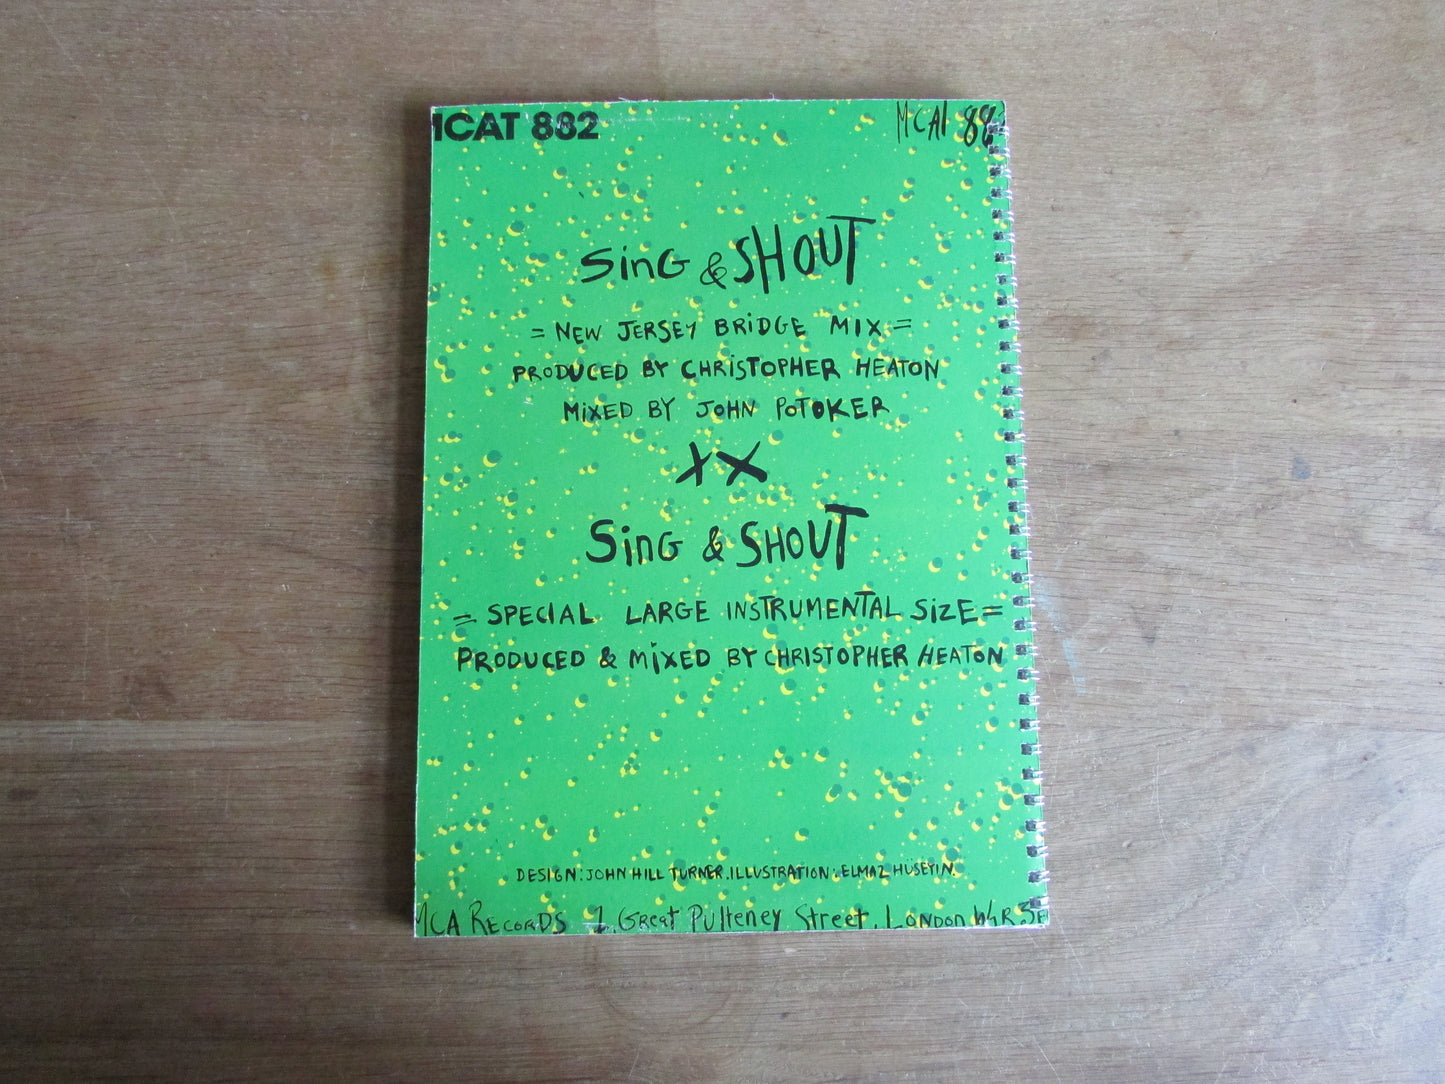 MCAT 882
MCAT 882
Sing & SHOUT
= NEW JERSEY BRIDGE MIX =
PRODUCED BY CHRISTOPHER HEATON
MIXED BY JOHN POTOKER
XX
Sing & SHOUT
= SPECIAL LARGE INSTRUMENTAL SIZE =
PRODUCED & MIXED BY CHRISTOPHER HEATON
DESIGN: JOHN HILL TURNER. ILLUSTRATION: ELMAZ HÜSEYIN.
MCA RECORDS 1, GREAT PULTENEY STREET, LONDON W1R 3